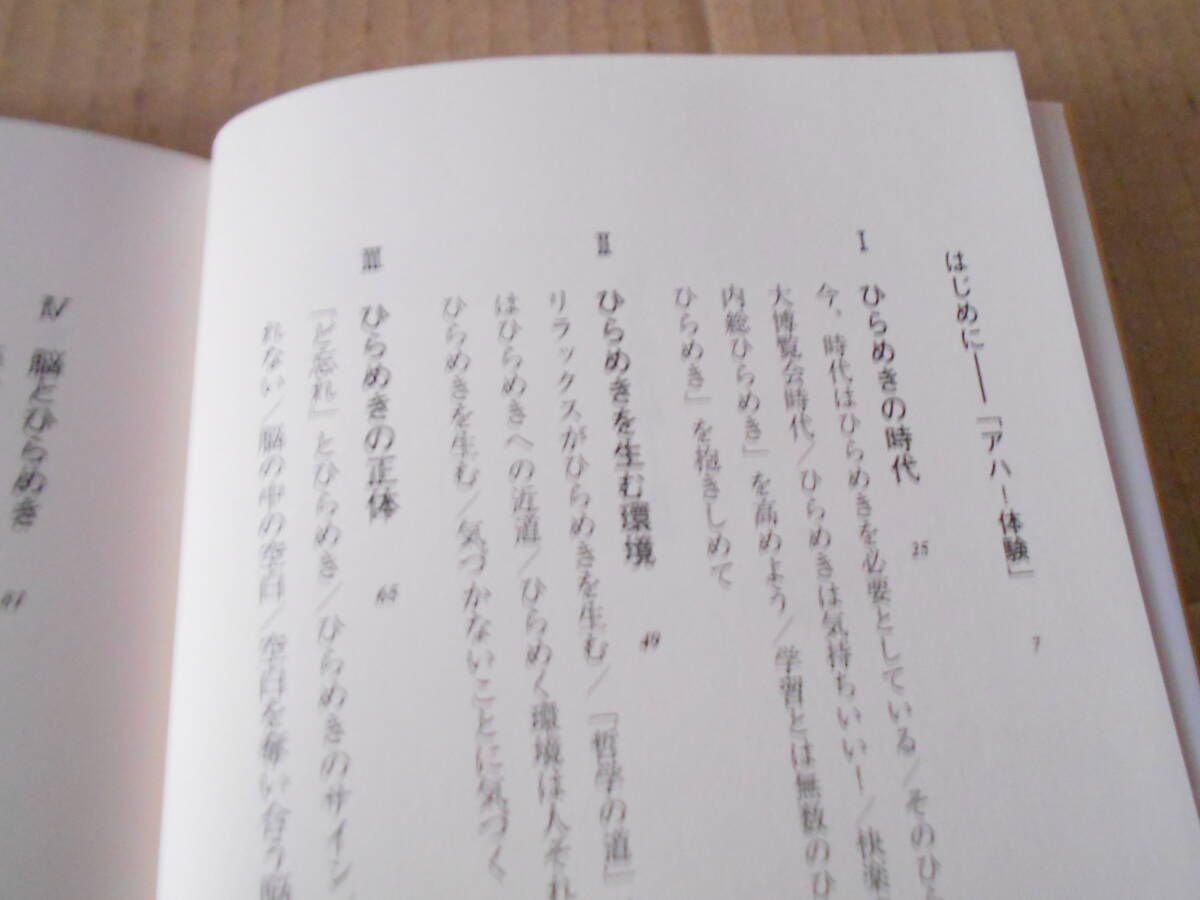 はじめに――「アハ!体験」
7
Ⅰ ひらめきの時代
25
今、時代はひらめきを必要としている/そのひら
大博覧会時代/ひらめきは気持ちいい!/快楽
内総ひらめき』を高めよう/学習とは無数のひ
ひらめき』を抱きしめて
Ⅱ ひらめきを生む環境
49
リラックスがひらめきを生む/『哲学の道』
はひらめきへの近道/ひらめく環境は人それ
ひらめきを生む/気づかないことに気づく
Ⅲ ひらめきの正体
65
『ど忘れ』とひらめき/ひらめきのサイン
れない/脳の中の空白/空白を奪い合う脳
Ⅳ 脳とひらめき
91